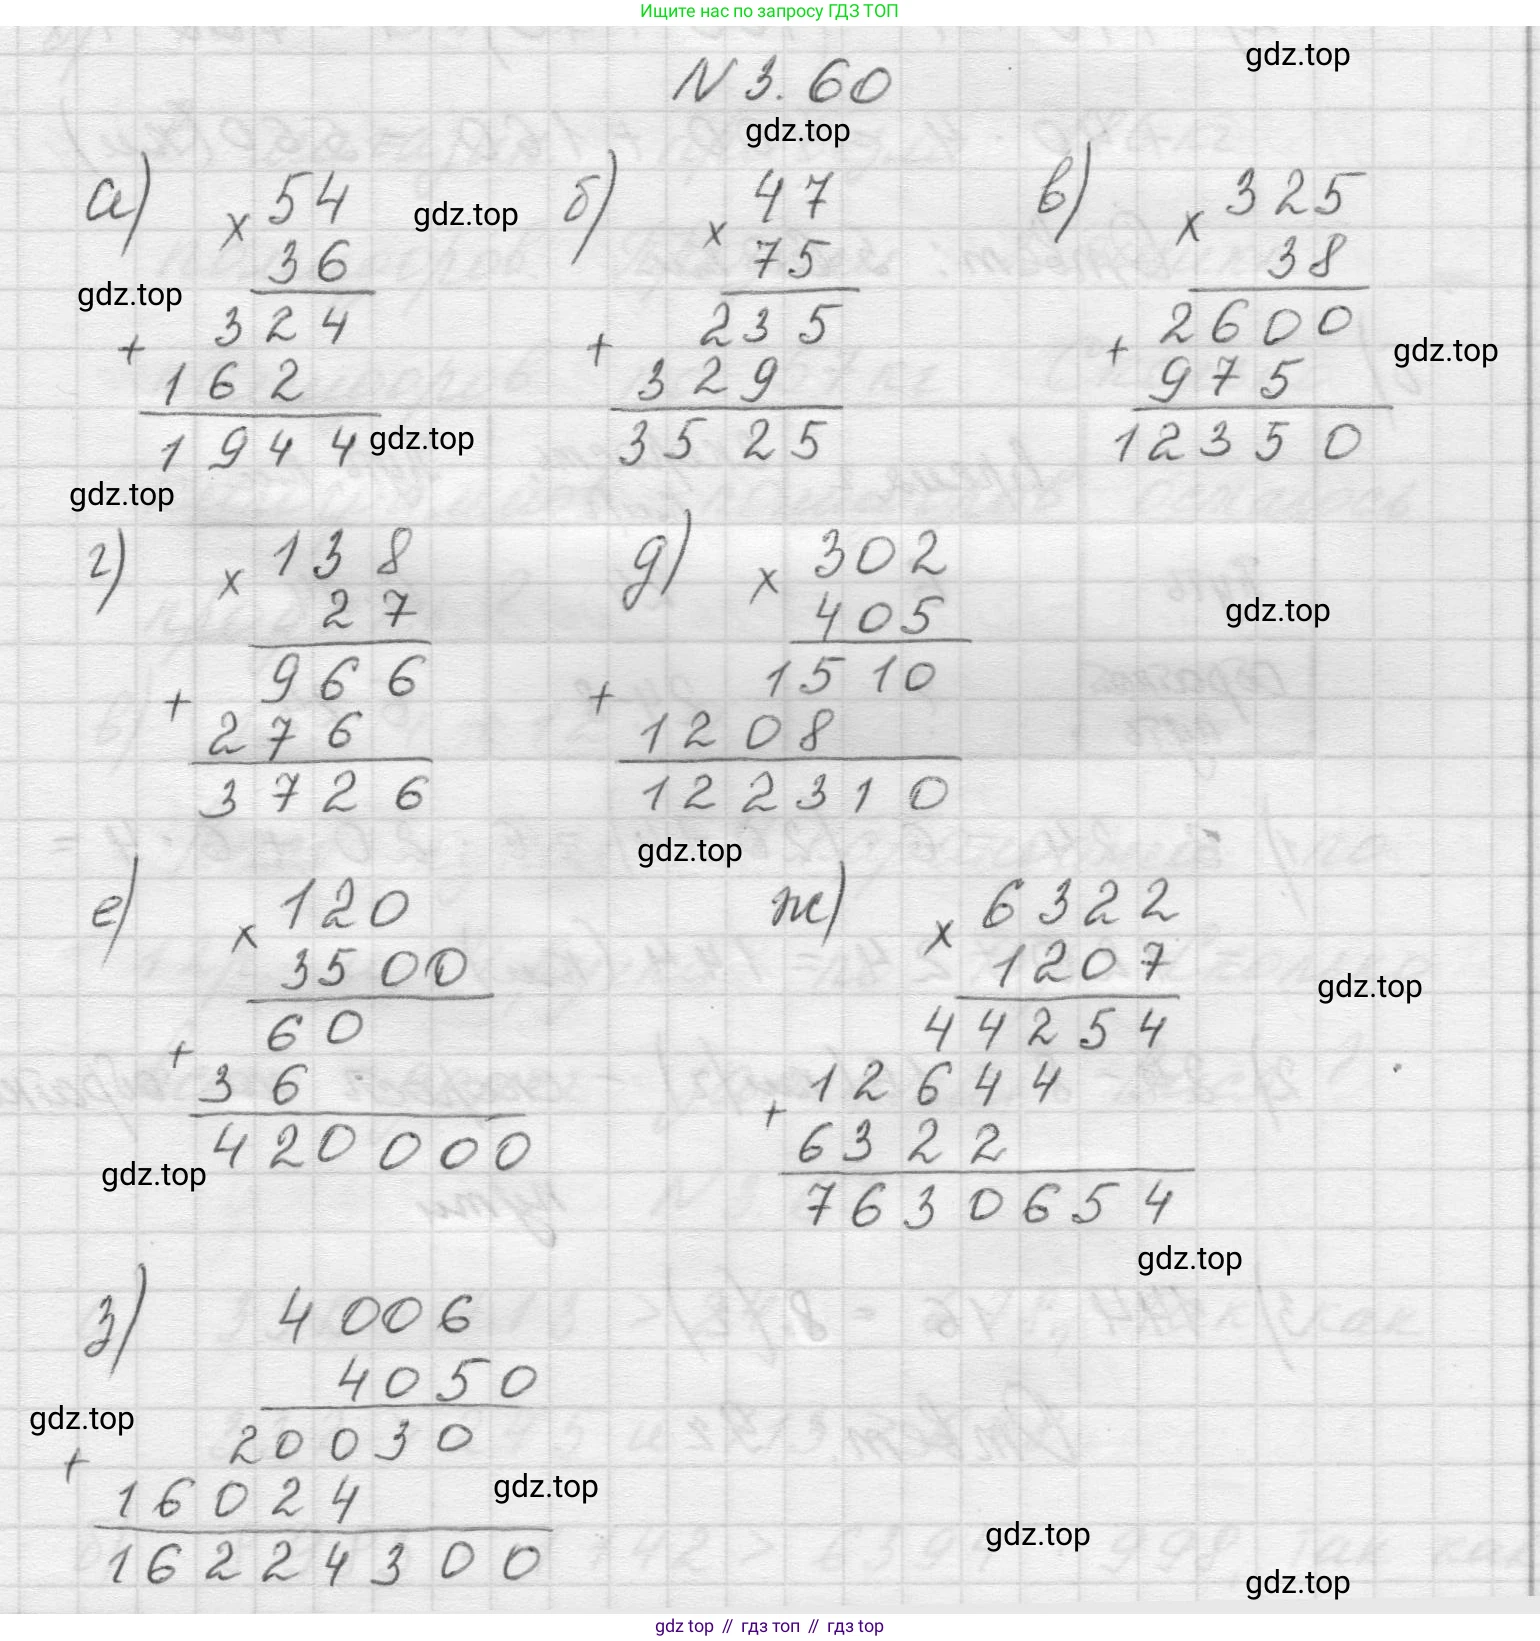 Ищите нас по запросу ГДЗ ТОП
gdz.top
N 3.60
gdz.top
а) × 54
36
324
+ 162
1944
б) × 47
75
235
+ 329
3525
в) × 325
38
2600
+ 975
12350
gdz.top
gdz.top
gdz.top
gdz.top
gdz.top
г) × 138
27
966
+ 276
3726
д) × 302
405
1510
+ 1208
122310
gdz.top
gdz.top
е) × 120
3500
60
+ 36
420000
ж) × 6322
1207
44254
12644
+ 6322
7630654
gdz.top
gdz.top
gdz.top
з) 4006
4050
20030
+ 16024
16224300
gdz.top
gdz.top
gdz.top
gdz.top
gdz top // гдз топ // гдз.top